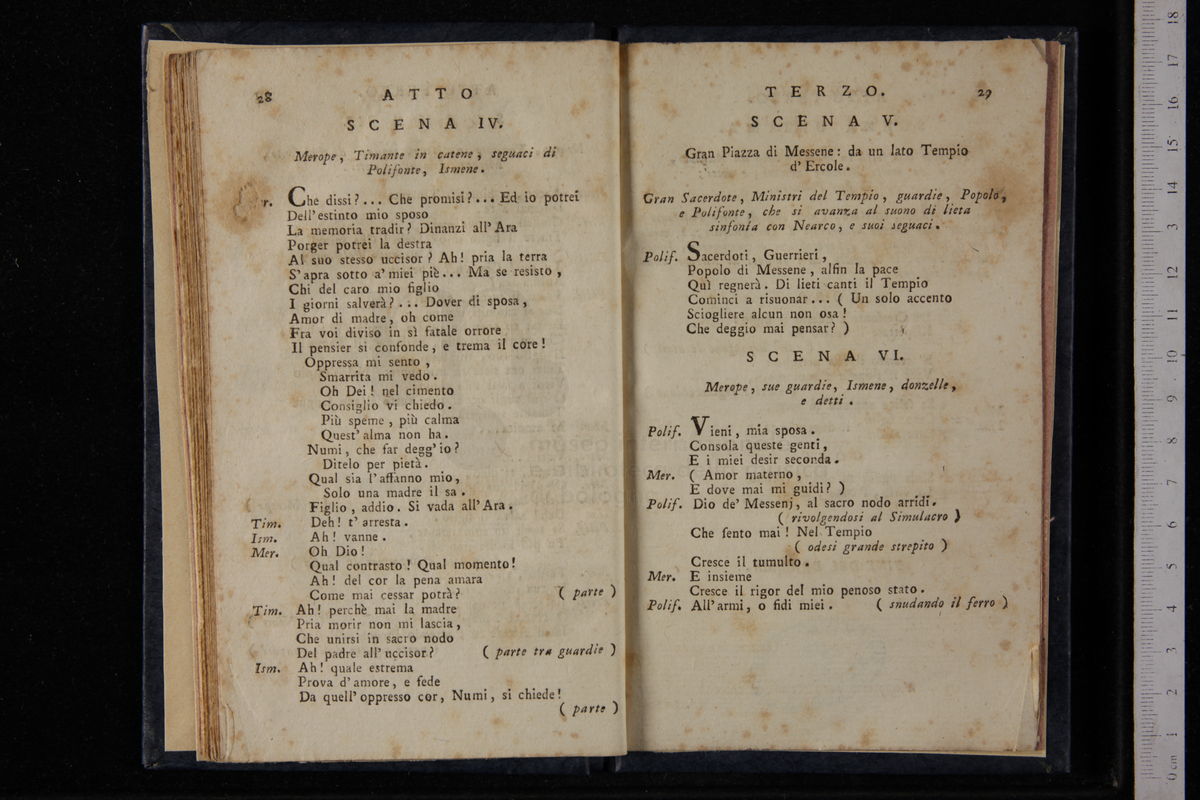 28 ATTO
SCENA IV.
Merope, Timante in catene, seguaci di
Polifonte, Ismene.
r. Che dissi?... Che promisi?... Ed io potrei
Dell'estinto mio sposo
La memoria tradir? Dinanzi all'Ara
Porger potrei la destra
Al suo stesso uccisor? Ah! pria la terra
S'apra sotto a'miei piè... Ma se resisto,
Chi del caro mio figlio
I giorni salverà?... Dover di sposa,
Amor di madre, oh come
Fra voi diviso in sì fatale orrore
Il pensier si confonde, e trema il core!
Oppressa mi sento,
Smarrita mi vedo.
Oh Dei! nel cimento
Consiglio vi chiedo.
Più speme, più calma
Quest'alma non ha.
Numi, che far degg'io?
Ditelo per pietà.
Qual sia l'affanno mio,
Solo una madre il sa.
Figlio, addio. Si vada all'Ara.
Tim. Deh! t'arresta.
Ism. Ah! vanne.
Mer. Oh Dio!
Qual contrasto! Qual momento!
Ah! del cor la pena amara
Come mai cessar potrà? ( parte )
Tim. Ah! perchè mai la madre
Pria morir non mi lascia,
Che unirsi in sacro nodo
Del padre all'uccisor? ( parte tra guardie )
Ism. Ah! quale estrema
Prova d'amore, e fede
Da quell'oppresso cor, Numi, si chiede!
( parte )
TERZO. 29
SCENA V.
Gran Piazza di Messene: da un lato Tempio
d'Ercole.
Gran Sacerdote, Ministri del Tempio, guardie, Popolo,
e Polifonte, che si avanza al suono di lieta
sinfonía con Nearco, e suoi seguaci.
Polif. Sacerdoti, Guerrieri,
Popolo di Messene, alfin la pace
Quì regnerà. Di lieti canti il Tempio
Cominci a risuonar... ( Un solo accento
Sciogliere alcun non osa!
Che deggio mai pensar? )
SCENA VI.
Merope, sue guardie, Ismene, donzelle,
e detti.
Polif. Vieni, mia sposa.
Consola queste genti,
E i miei desir seconda.
Mer. ( Amor materno,
E dove mai mi guidi? )
Polif. Dio de' Messenj, al sacro nodo arridi.
( rivolgendosi al Simulacro )
Che fento mai! Nel Tempio
( odesi grande strepito )
Cresce il tumulto.
Mer. E insieme
Cresce il rigor del mio penoso stato.
Polif. All'armi, o fidi miei. ( snudando il ferro )
0 cm 1 2 3 4 5 6 7 8 9 10 11 12 13 14 15 16 17 18